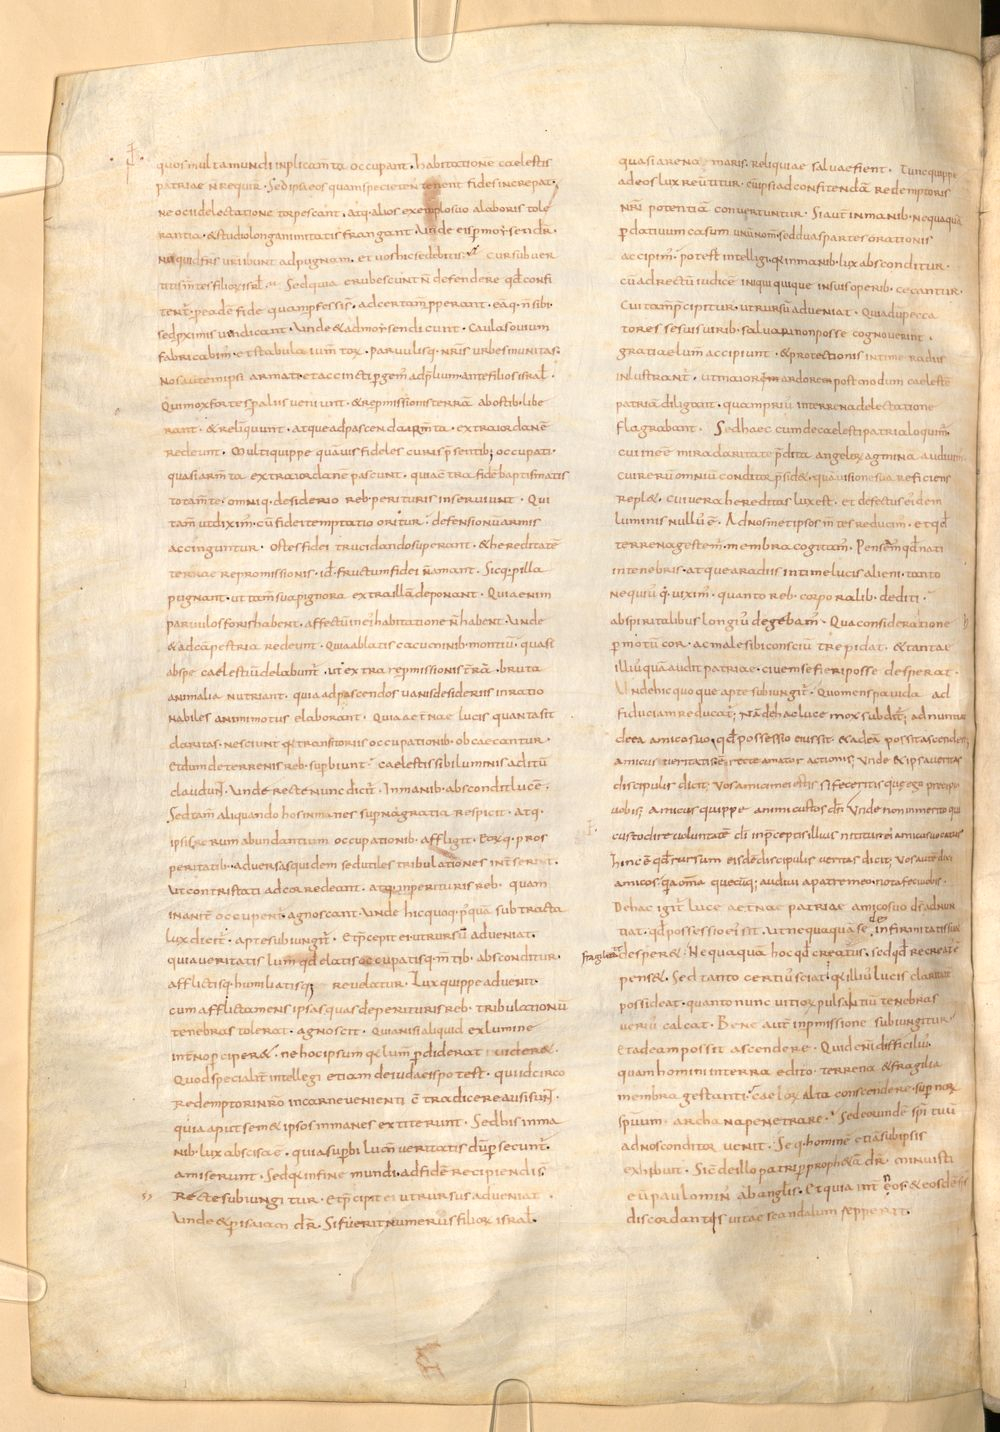 quos multa mundi inplicam̄ta occupant · habitationē caelestis
patriae n̄ requir̄ · Sed ipsa eos quam specie ten tenent fides increpat ·
ne ocii delectatione torpescant · atq· alios exemplo suo a laboris tole
rantia · & studio longanimitatis frangant · Vnde eis p̱ moysen dr̄ ·
Nuquid fr̄s vr̄i ibunt ad pugnam · et uos hic sedebitis · cur subuer
titis m̄tes filiorꝝ isr̄l · Sed quia erubescunt n̄ defendere qd̄ confi
tent̄ · pea dē fide quam p̱fessi s̄ · ad certam̄ p̱perant · eāq· n̄ sibi ·
sed p̱ximis uindicant · Vnde & ad moysen dicunt · Caulas ouium
fabricabim̄ · et stabula ium̄torꝝ · paruulisq· nr̄is urbes munitas ·
Nos autem ipsi armati et accincti p̱gem̄ ad p̱lium ante filios isr̄l ·
Qui mox fortes p̱ aliis ueniunt · & rep̱missionis terrā ab ostib· libe
rant · & relinquunt · atque ad pascenda ium̄ta · extra iordanē
redeunt · Multi quippe quamuis fideles curis p̄sentib; occupati ·
quasi arm̄ta extra iordanē pascunt · quia c̄tra fidē baptismatis
tota m̄te · omniq· desiderio reb· perituris inseruiunt · Qui
tam̄ ut dixim̄ · cū fidei temptatio oritur · defensionū armis
accinguntur · ostes fidei trucidando superant · & hereditatē
terrae repromissionis · id· fructum fidei n̄ amant · Sicq· p̱ illa
pugnant · ut tam̄ sua pignora extra illā deponant · Quia enim
paruulos foris habent · affectū in ei' habitatione n̄ habent · Vnde
& ad cāpestria redeunt · Quia ab altis cacuminib· montiū · quasi
ab spe caelestiū delabunt̄ · ut extra rep̱missionis t̄rā · bruta
animalia nutriant · quia ad pascendos uanis desideriis inratio
nabiles animi motus elaborant · Quia aet̄nae lucis quanta sit
claritas · nesciunt qi transitoriis occupationib· obcaecantur ·
Et dum de terrenis reb· sup̱biunt · caelestis sibi luminis aditū
claudunt̄ · Vnde recte nunc dicit̄ · In manib· abscondit lucē ·
Sed tam̄ aliquando hos in manes sup̱na gratia respicit · atq·
ipsis rerum abundantium occupationib· affligit · Eorꝝq· pros
peritatib· aduersas quidem sed utiles tribulationes int̄serit ·
Vt contristati ad cor redeant · atq· in perituris reb· quam
inanit̄ occupent̄ · agnoscant · Vnde hic quoq· p' quā subtracta
lux dicit̄ · apte subiungit̄ · Et p̄cepit ei · ut rursū adueniat ·
quia ueritatis lum̄ qd̄ elatis occupatisq· m̄tib· absconditur ·
afflictisq· humiliatisq; reuelatur · Lux quippe aduenit ·
cum afflicta mens ipsas quas de perituris reb· tribulationū
tenebras tolerat · agnoscit · Quia nisi aliquid ex lumine
int̄no p̱ciperet · nec hoc ipsum qi lum̄ p̱diderat uideret ·
Quod specialit̄ intellegi etiam de iudaeis potest · qui idcirco
Redemptori nr̄o in carne uenienti c̄tradicere ausi sunt̄ ·
quia aput semet ipsos inmanes extiterunt · Sed his inma
nib· lux abscisa ē · quia sup̱bi lum̄ ueritatis dū p̱secunt̄ ·
amiserunt · Sed q· in fine mundi · ad fidē recipiendi s̄ ·
Recte subiungitur · Et p̄cipit ei ut rursus adueniat ·
Vnde & p̱ isaiam dr̄ · Si fuerit numerus filiorꝝ isr̄l ·
quasi arena maris · reliquiae saluae fient · Tunc quippe
ad eos lux reuertitur · cū ipsi ad confitendā redemptoris
nr̄i potentiā conuertuntur · Si aut̄ inmanib· nequaquā
p̱ datiuum casum unū nom̄ · sed duas partes orationis
accipim̄ · potest intelligi · qi in manib· lux absconditur ·
cū ad rectū iudicē iniqui quique in suis operib· cecantur ·
Cui tam̄ p̄cipitur · ut rursū adueniat · Quia dū pecca
tores se suis uirib· saluari non posse cognouerint ·
gratiae lum̄ accipiunt · & protectionis intime radiis
inlustrant̄ · ut maiore ardore post modum caelestē
patriā diligant · quam priu' in terrena delectatione
flagrabant · Sed haec cum de caelesti patria loquim̄ ·
cui inēē mira claritate p̄dita angelorꝝ agmina audiuim̄ ·
cui rerū omniū conditor p̄sidet · quā uisione sua reficiens
replet · cui uera hereditas lux est · et defectus ei'dem
luminis null' ē · Ad nosmet ipsos m̄tes reducim̄ · et qd̄
terrena gestem̄ membra cogitam̄ · Pensem̄ qd̄ nati
in tenebris · atque a radiis intime lucis alieni · tanto
nequi' q· uixim̄ · quanto reb· corporalib· dediti ·
ab spiritalibus longiu' degebam̄ · Qua consideratione
p̱motū cor · ac male sibi consciū trepidat · & tantae
illiu' quā audit patriae · ciuem se fieri posse desperat ·
Vnde hic quoque apte subiungit̄ · Quo mens pauida ad
fiduciam reducat̄; Nā de hac luce mox subdit̄; adnuntiat
de ea amico suo · qd̄ possessio ei' sit · & ad eā possit ascendere;
amicus ueritatis ē; recte amator actionis; Vnde & ipsa ueritas
discipulis dicit; Vos amici mei estis si feceritis que ego precipio
uobis; Amicus quippe animi custos dr̄; Vnde non inmerito qui
custodire uoluntatē dī in p̄ceptis illius nititur ei' amicus uocatur
hinc ē qd̄ rursum eisdē discipulis ueritas dicit; Vos autē dixi
amicos · qa om̄a quecūq; audiui a patre meo · nota feci uobis ·
De hac igit̄ luce aet̄nae patriae amico suo dr̄ adnun
tiat · qd̄ possessio ei' sit · ut nequaquā se de infirmitatis suae
fragilitate desperet · Nequaquā hoc qd̄ creatus · sed qd̄ recreat' ē
penset · Sed tanto certiu' sciat · qi illiu' lucis claritatē
possideat · quanto nunc uitiorꝝ pulsantiū tenebras
ueriu' calcat · Bene aut̄ in p̱missione subiungitur ·
Et ad eam possit ascendere · Quid enī difficiliu'
quam homini in terra edito · terrena & fragilia
membra gestanti · caelorꝝ alta conscendere · sup̱norꝝ
sp̄uum · archana penetrare · Sed eorundē sp̄ituū
ad nos conditor uenit · Seq· hominē etiā sub ipsis
exhibuit · Sic de illo patri p̱ prophetā dr̄ · Minuisti
eū paulo min' ab anglis · Et quia int̄ eos & eosdē sp̄s
discordantis uitae scandalum repperit ·